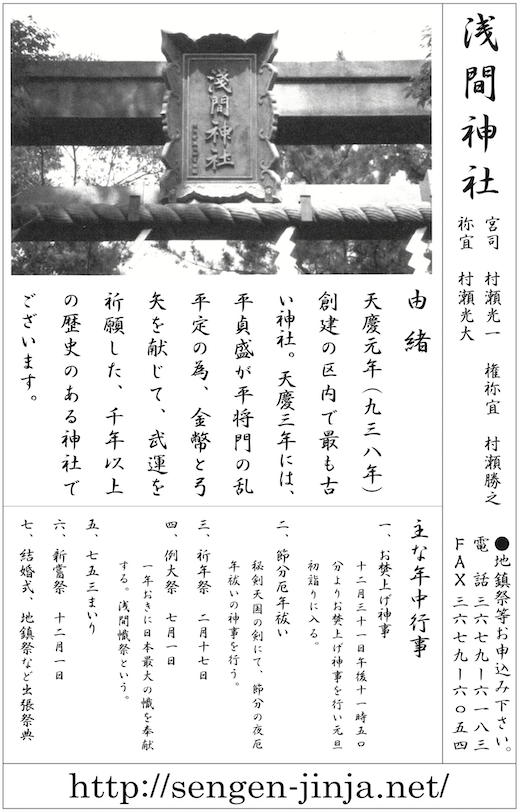 浅間神社
宮司 村瀬光一 権祢宜 村瀬勝之
祢宜 村瀬光大
●地鎮祭等お申込み下さい。
電話 三六七九ー六一八三
FAX 三六七九ー六〇五四
淺間神社
由緒
天慶元年(九三八年)
創建の区内で最も古
い神社。天慶三年には、
平貞盛が平将門の乱
平定の為、金幣と弓
矢を献じて、武運を
祈願した、千年以上
の歴史のある神社で
ございます。
主な年中行事
一、お焚上げ神事
十二月三十一日午後十一時五〇
分よりお焚上げ神事を行い元旦
初詣りに入る。
二、節分厄年祓い
秘剣天国の剣にて、節分の夜厄
年祓いの神事を行う。
三、祈年祭 二月十七日
四、例大祭 七月一日
一年おきに日本最大の幟を奉献
する。浅間幟祭という。
五、七五三まいり
六、新嘗祭 十二月一日
七、結婚式、地鎮祭など出張祭典
http://sengen-jinja.net/